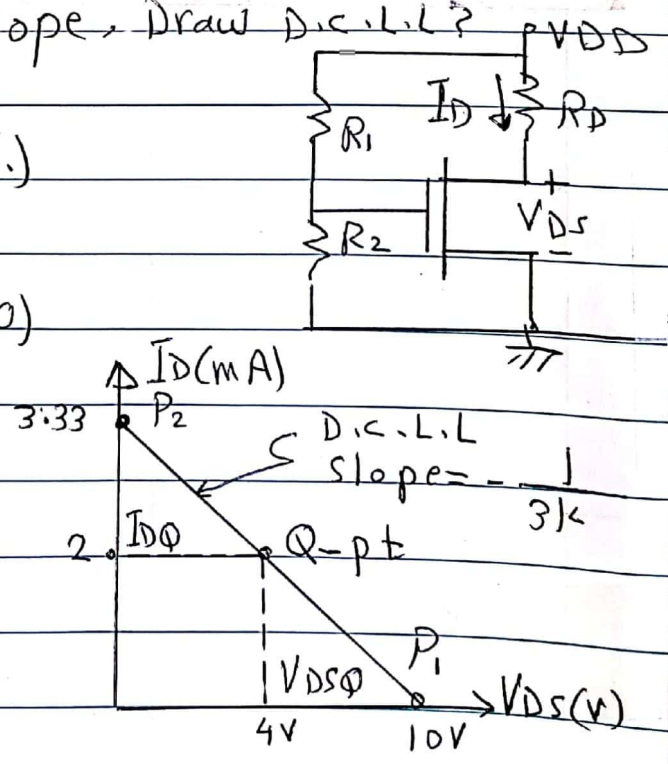 ope, Draw D.C.L.L?
VDD
ID
RD
R1
.)
VDS
+
-
R2
0)
ID(mA)
3.33
P2
D.C.L.L
slope= - 1/3K
2
IDQ
Q-pt
P1
VDSQ
VDS(V)
4V
10V